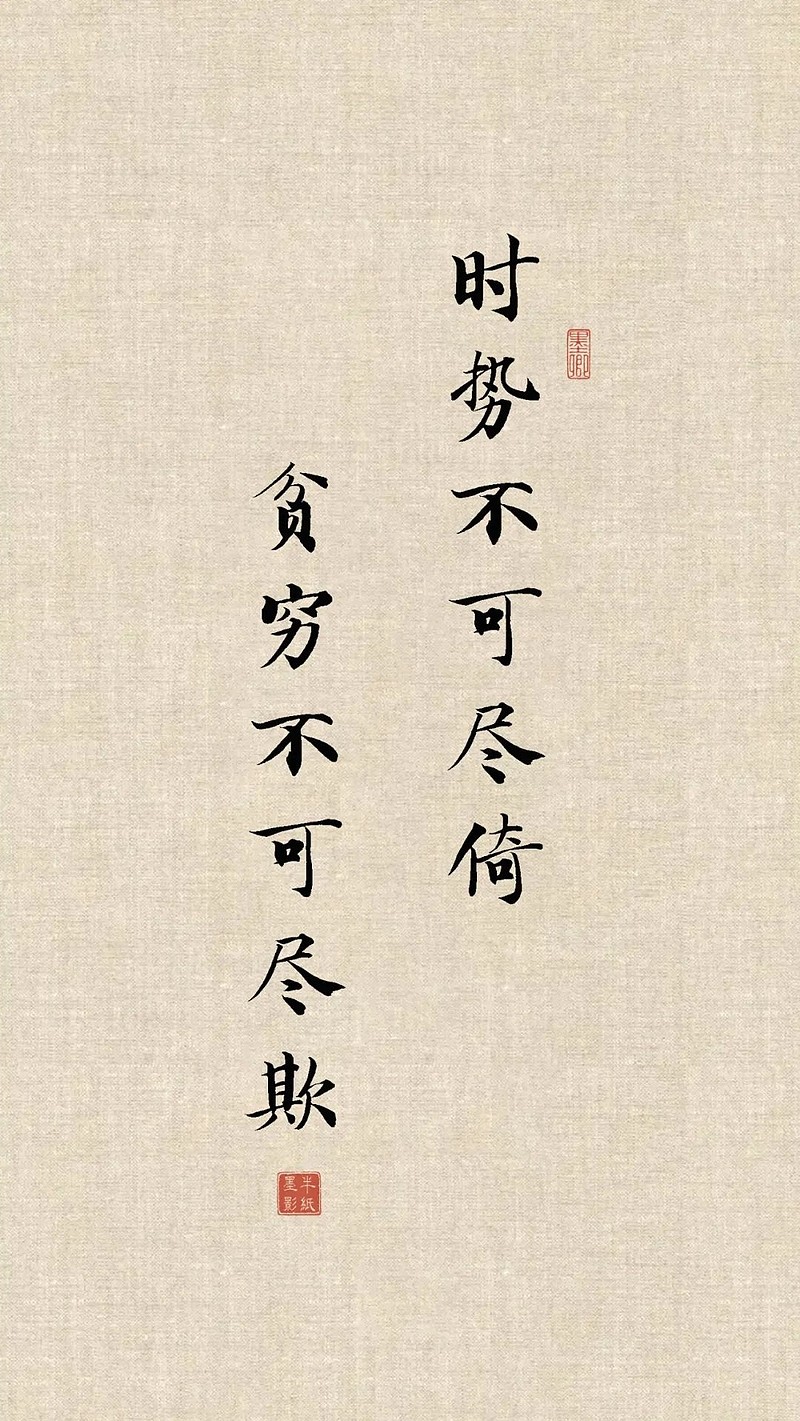 时势不可尽倚
贫穷不可尽欺
墨卿
半纸墨影